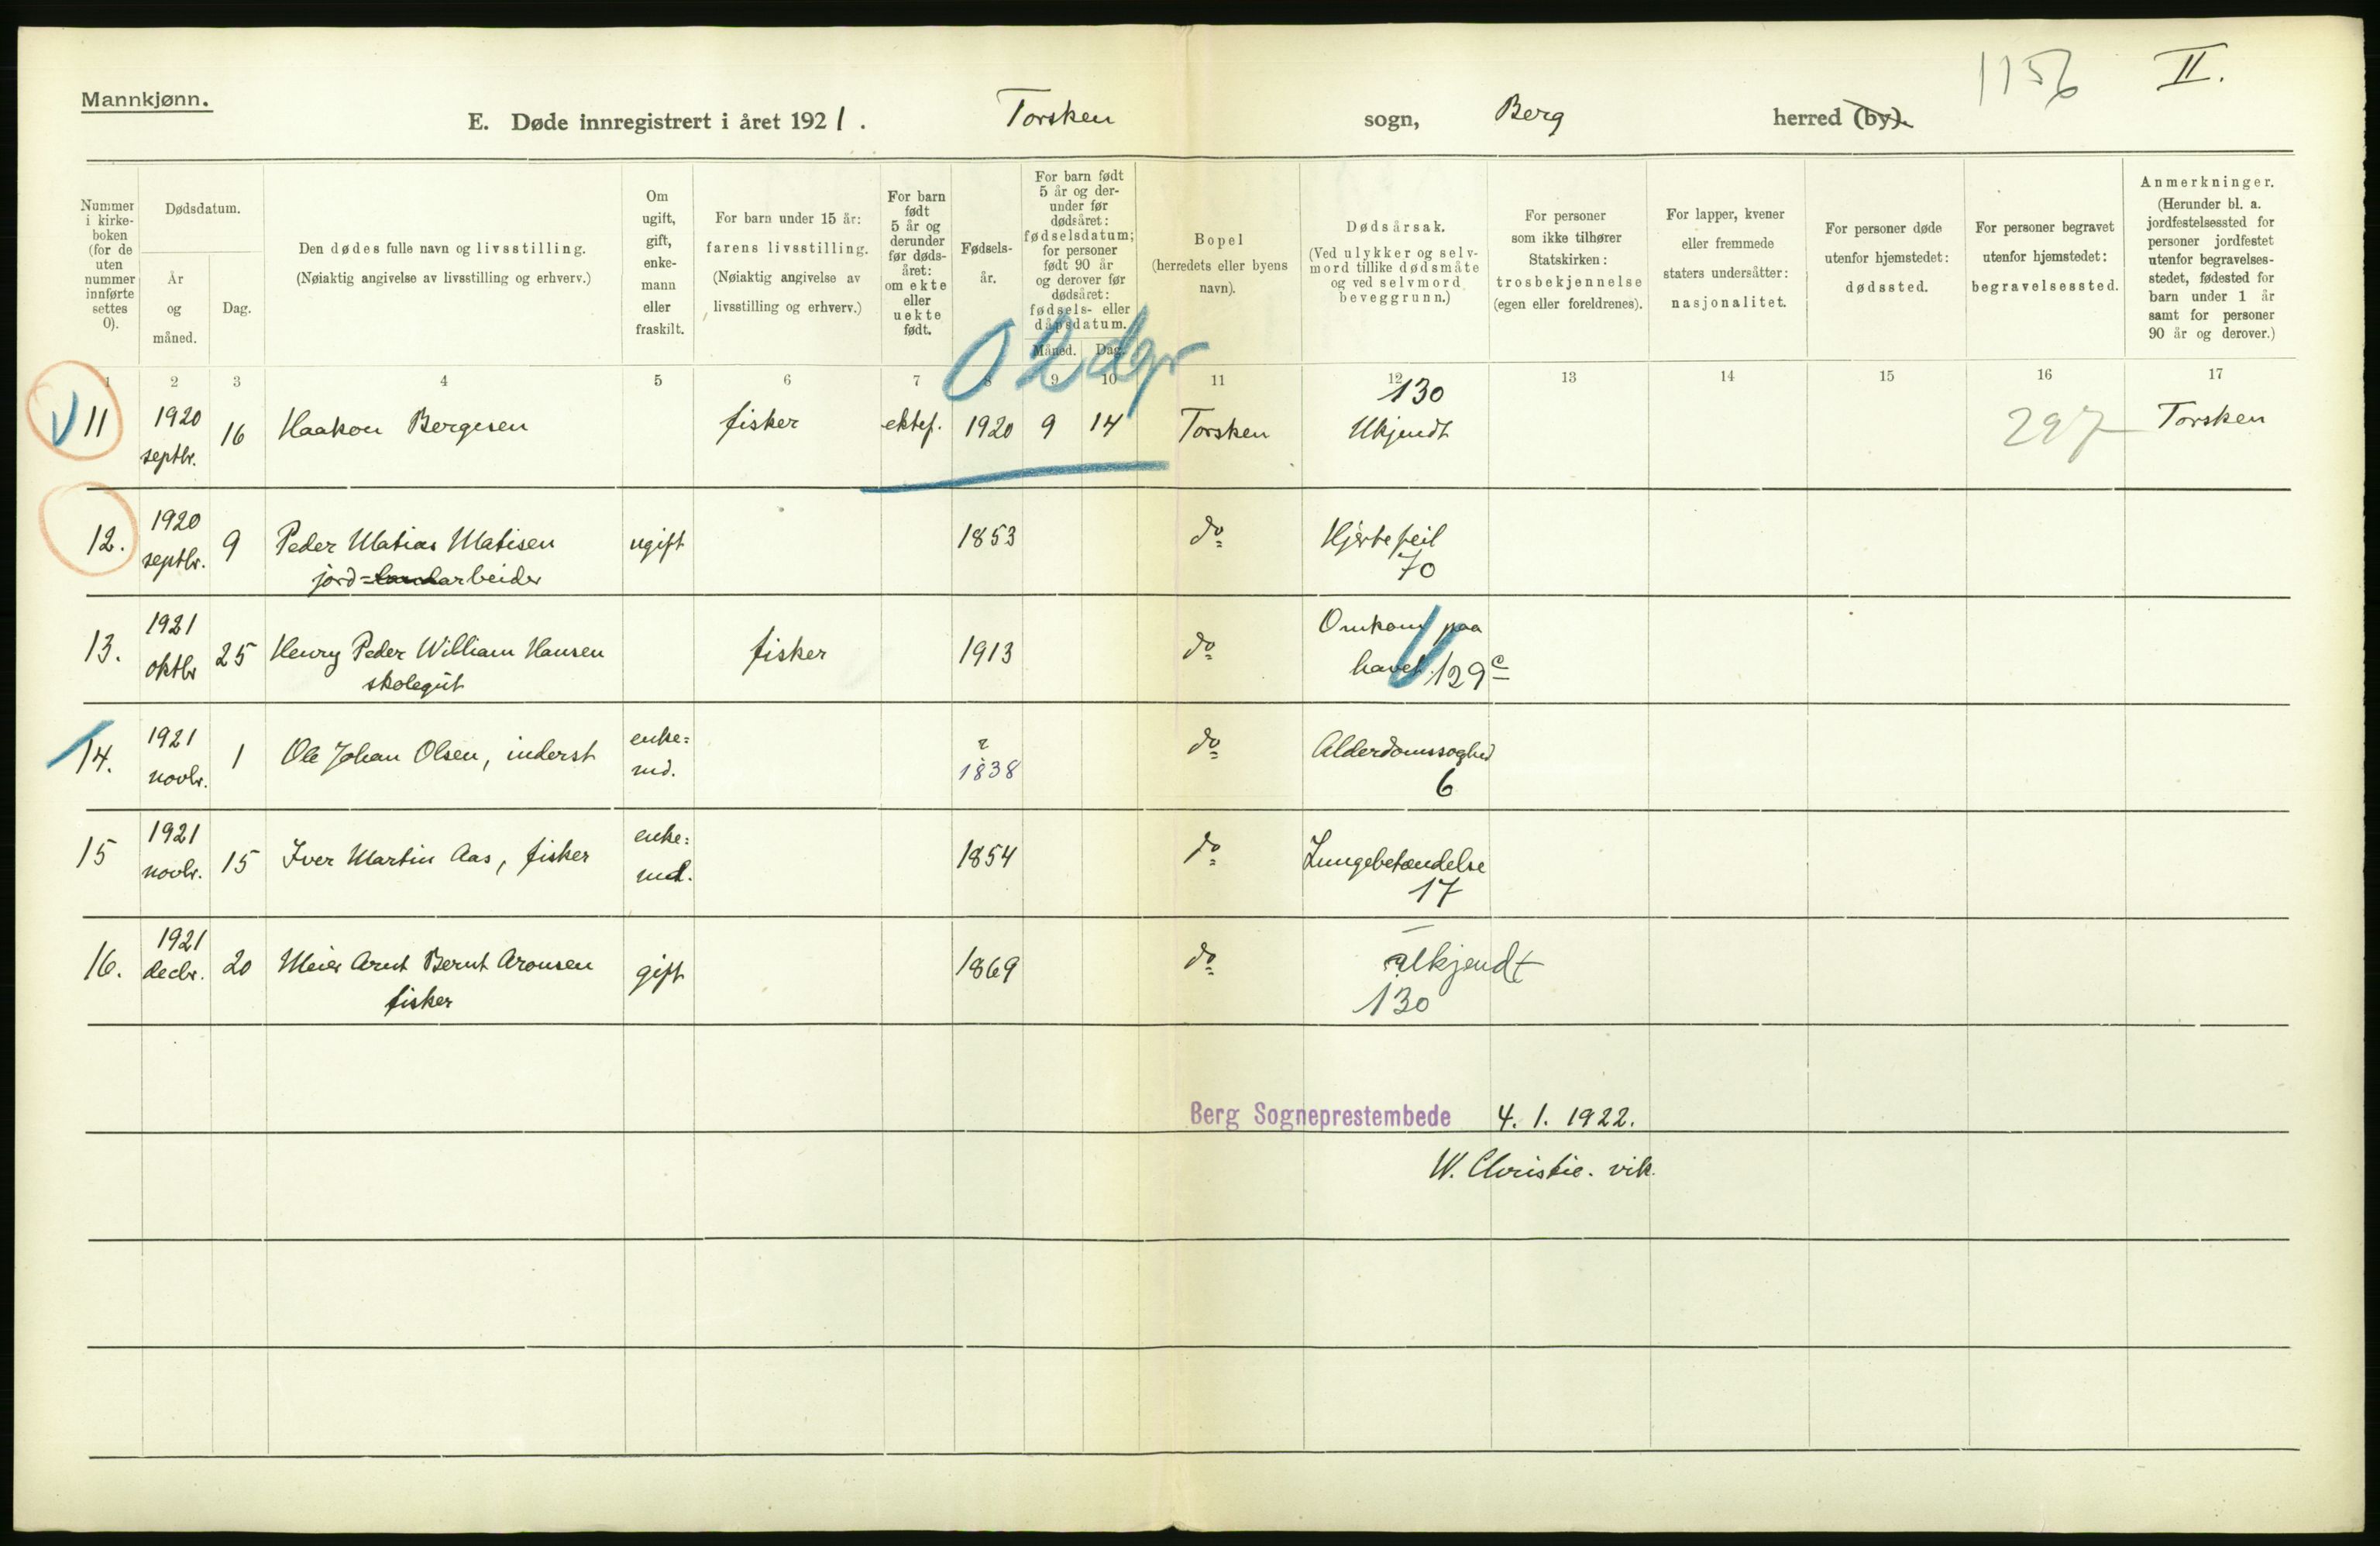 1156 II.
Mannkjønn.
E. Døde innregistrert i året 1921. Torsken sogn, Berg herred (by).
Nummer
i kirke-
boken
(for de
uten
nummer
innførte
settes
0).
Dødsdatum.
År
og
måned.
Dag.
Den dødes fulle navn og livsstilling.
(Nøiaktig angivelse av livsstilling og erhverv.)
Om
ugift,
gift,
enke-
mann
eller
fraskilt.
For barn under 15 år:
farens livsstilling.
(Nøiaktig angivelse av
livsstilling og erhverv.)
For barn
født
5 år og
derunder
før døds-
året:
om ekte
eller
uekte
født.
Fødsels-
år.
For barn født
5 år og der-
under før
dødsåret:
fødselsdatum;
for personer
født 90 år
og derover før
dødsåret:
fødsels- eller
dåpsdatum.
Måned. Dag.
Bopel
(herredets eller byens
navn).
Dødsårsak.
(Ved ulykker og selv-
mord tillike dødsmåte
og ved selvmord
beveggrunn.)
For personer
som ikke tilhører
Statskirken:
trosbekjennelse
(egen eller foreldrenes).
For lapper, kvener
eller fremmede
staters undersåtter:
nasjonalitet.
For personer døde
utenfor hjemstedet:
dødssted.
For personer begravet
utenfor hjemstedet:
begravelsessted.
Anmerkninger.
(Herunder bl. a.
jordfestelsessted for
personer jordfestet
utenfor begravelses-
stedet, fødested for
barn under 1 år
samt for personer
90 år og derover.)
1 2 3 4 5 6 7 8 9 10 11 12 13 14 15 16 17
0 2 dgr
130
11 1920 septbr. 16 Haakon Bergesen fisker ektef. 1920 9 14 Torsken Ukjendt 297 Torsken
12. 1920 septbr. 9 Peder Matias Matisen ugift 1853 do Hjertefeil
jord-landarbeider 70
13. 1921 oktbr 25 Henry Peder William Hansen fisker 1913 do Omkom paa
skolegut havet. 129c
14. 1921 novbr. 1 Ole Johan Olsen, inderst enke=
md. 1838 do Alderdomssvaghed
6
15 1921 novbr. 15 Iver Martin Aas, fisker enke=
md. 1854 do Lungebetændelse
17
16. 1921 decbr. 20 Meier Arnt Bernt Aronsen gift 1869 do Ukjendt
fisker 130
Berg Sogneprestembede 4. 1. 1922.
W. Christie. vik.